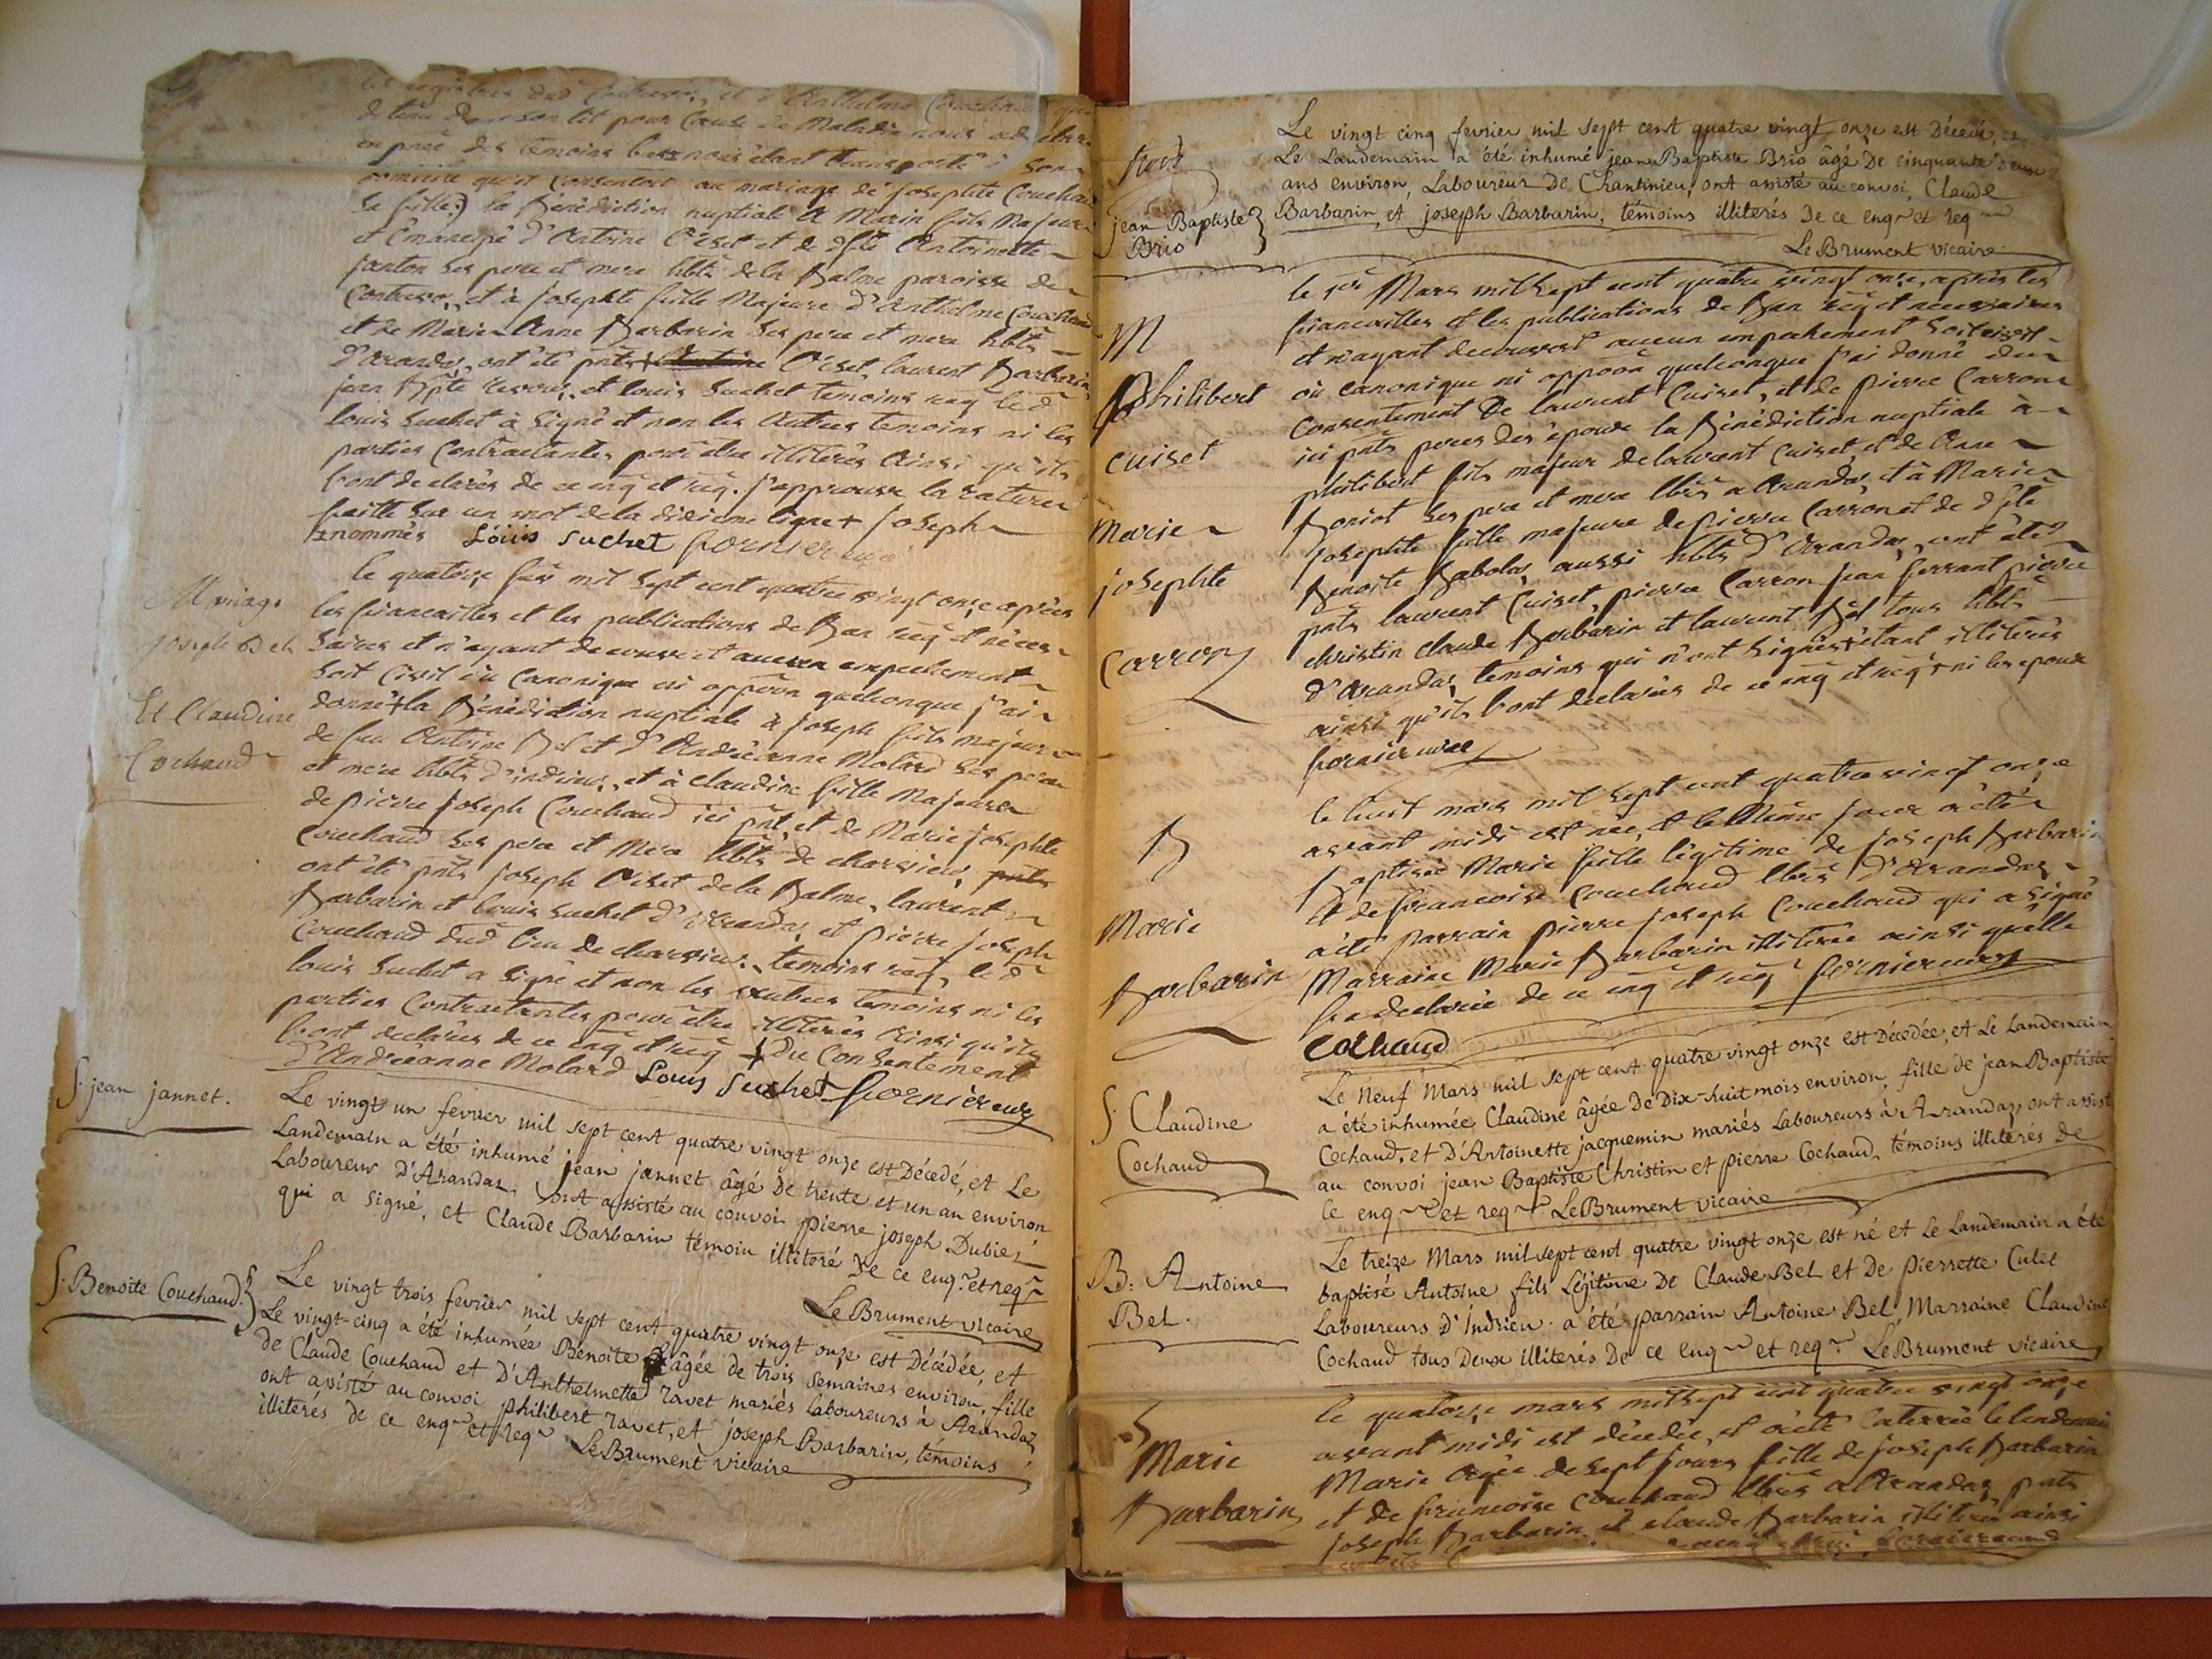 les registres dud Contrevoz, et d'Anthelme Couchaud
de son lit pour Cause de Maladie nous a declaré
en pnce des temoins bas nommés étant transporté à son
domicile qu'il Consentoit au mariage de Josephte Couchaud
sa fille) la Bénédiction nuptiale à Marin fils Majeur
et Emancipé d'Antoine Oiset et de dfte Antoinette
janton ses pere et mere hbts de la Balme paroisse de
Contrevoz, et à josephte fille Majeure d'Anthelme Couchaud
et de Marie-Anne Barbarin ses pere et mere hbts
d'arandas, ont été pnts + Oiset, laurent Barbarin
jean Bpte et louis Suchet temoins req led
louis Suchet à Signé et non les Autres temoins ni les
parties Contractantes pour etre illiterés Ainsi qu'ils
l'ont declarés de ce enq et req. j'approuve la rature
faitte sur un mot de la dixieme ligne + joseph
nommés Loüis Suchet fornier curé
Mariage
Joseph Bel
Et Claudine
Cochaud
le quatorze fév mil sept cent quatre vingt onze après
les fiancailles et les publications de Ban req et néces-
saires et n'ayant decouvert aucun empechement
soit Civil ou Canonique ni oppôon quelconque j'ai
donné + la Bénédiction nuptiale à joseph fils majeur
de feu Antoine Bel et d'Andréanne Molard ses pere
et mere hbts d'indrieux, et à Claudine fille Majeure
de pierre joseph Couchaud ici pnt, et de Marie josephte
Couchaud ses pere et Mere hbts de charvieu, pnts
ont été pnts joseph Oiset de la Balme, laurent
Barbarin et louis Suchet d'Arandas, et pierre joseph
Couchaud dud lieu de charvieu, temoins req, led
louis Suchet a signé et non les autres temoins ni les
parties Contractantes pour etre illiterés Ainsi qu'ils
l'ont declarés de ce enq et req + du Consentement
d'Andréanne Molard Louis Suchet fornier curé
S. jean jannet.
Le vingt un fevrier mil sept cent quatre vingt onze est Décédé, et Le
Landemain a été inhumé jean jannet âgé De trente et un an environ
Laboureur D'Arandaz, ont assisté au convoi pierre joseph Dubiez
qui a signé, et Claude Barbarin témoin illiteré De ce enq.r et req.r
Le Brument vicaire
S. Benoite Couchaud.
Le vingt trois fevrier mil sept cent quatre vingt onze est Décédée, et
Le vingt-cinq a été inhumée Benoite âgée de trois semaines environ, fille
de Claude Couchaud et D'Anthelmette ravet mariés Laboureurs à Arandaz,
ont assisté au convoi philibert ravet, et joseph Barbarin, témoins
illiterés de ce enq.r et req.r Le Brument vicaire
jean Baptiste
Brio
Le vingt cinq fevrier mil sept cent quatre vingt onze est Décédé, et
Le Landemain a été inhumé jean Baptiste Brio âgé De cinquante deux
ans environ, Laboureur De Chantinieu, ont assisté au convoi, Claude
Barbarin, et joseph Barbarin, témoins illiterés De ce enq.r et req.r
Le Brument vicaire
M
Philibert
cuiset
Marie
josephte
Carron
le 1er Mars mil sept cent quatre vingt onze, après les
fiancailles et les publications de Ban req et necessaires
et n'ayant decouvert aucun empechement soit civil
ou canonique ni oppôon quelconque j'ai donné du
Consentement De laurent Cuiset, et de pierre Carron
ici pnts peres des époux la Bénédiction nuptiale à
philibert fils majeur de laurent Cuiset, et de Anne
Boniot ses pere et mere hbts a Arandas, et à Marie
josephte fille majeure de pierre Carron et de dfte
Benoite Babolas, aussi hbts d'Arandas, ont été
pnts laurent Cuiset, pierre Carron jean ferrant pierre
christin claude Barbarin et laurent Bel tous hbts
d'Arandas, temoins qui n'ont signés + étant illiterés
ainsi qu'ils l'ont declarés de ce enq et req + ni les epoux
fornier curé
B
Marie
Barbarin
le huit mars mil sept cent quatre vingt onze
avant midi est née, et le Même jour a été
Baptisée Marie fille légitime de joseph Barbarin
et de francoise Couchaud hbts d'Arandas
a été parrain pierre joseph Couchaud qui a signé
Marraine Marie Barbarin illiterée ainsi qu'elle
l'a declaré de ce enq et req fornier curé
Cochaud
S. Claudine
Cochaud
Le Neuf Mars mil sept cent quatre vingt onze est Décédée, et Le Landemain
a été inhumée Claudine âgée De Dix-huit mois environ, fille de jean Baptiste
Cochaud, et D'Antoinette jacquemin mariés Laboureurs à Arandaz, ont assisté
au convoi jean Baptiste Christin et pierre Cochaud, témoins illiterés de
ce enq.r et req.r Le Brument vicaire
B. Antoine
Bel.
Le treize Mars mil sept cent quatre vingt onze est né et Le Landemain a été
baptisé Antoine fils Légitime De Claude Bel et De pierrette Culet
Laboureurs D'Indrieu. a été parrain Antoine Bel Marraine Claudine
Cochaud tous Deux illiterés De ce enq.r et req.r Le Brument vicaire
S
Marie
Barbarin
le quatorze mars mil sept cent quatre vingt onze
avant midi est décedée, et a été enterrée le lendemain
Marie Agée de sept jours fille de joseph Barbarin
et de francoise Couchaud hbts a Arandas, pnts
joseph Barbarin et claude Barbarin illiterés ainsi
fornier curé